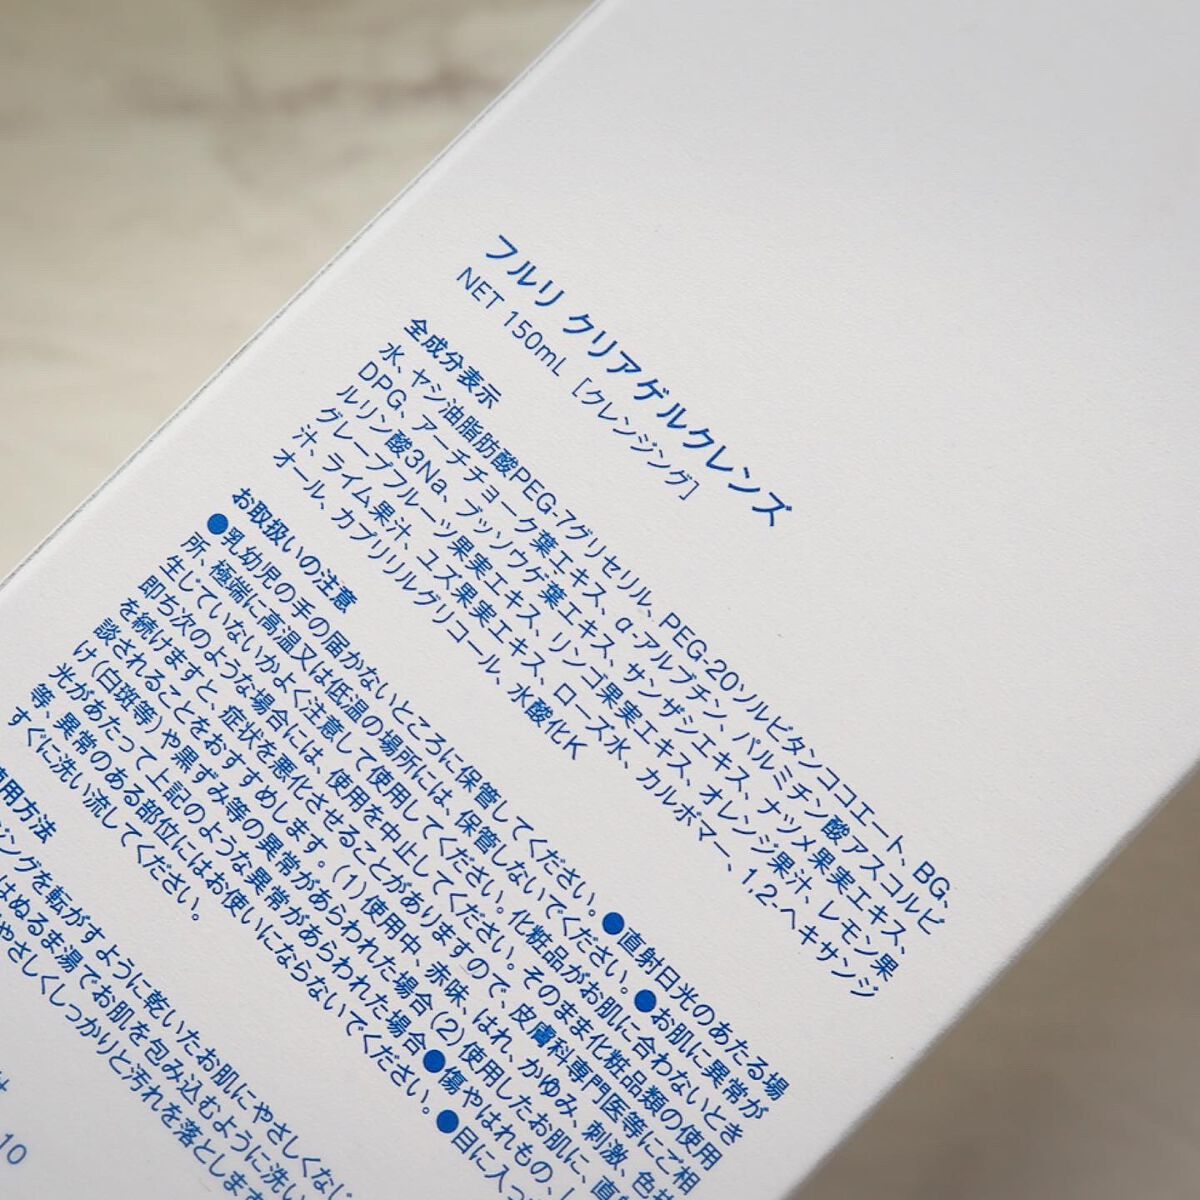 フルリ クリアゲルクレンズ
NET 150mL [クレンジング]
全成分表示
水、ヤシ油脂肪酸PEG-7グリセリル、PEG-20ソルビタンココエート、BG、
DPG、アーチチョーク葉エキス、α-アルブチン、パルミチン酸アスコルビ
ルリン酸3Na、ブッソウゲ葉エキス、サンザシエキス、ナツメ果実エキス、
グレープフルーツ果実エキス、リンゴ果実エキス、オレンジ果汁、レモン果
汁、ライム果汁、ユズ果実エキス、ローズ水、カルボマー、1,2-ヘキサンジ
オール、カプリリルグリコール、水酸化K
お取扱いの注意
●乳幼児の手の届かないところに保管してください。●直射日光のあたる場
所、極端に高温又は低温の場所には、保管しないでください。●お肌に異常が
生じていないかよく注意して使用してください。化粧品がお肌に合わないとき
即ち次のような場合には、使用を中止してください。そのまま化粧品類の使用
を続けますと、症状を悪化させることがありますので、皮膚科専門医等にご相
談されることをおすすめします。(1)使用中、赤味、はれ、かゆみ、刺激、色抜
け(白斑等)や黒ずみ等の異常があらわれた場合(2)使用したお肌に、直射
光があたって上記のような異常があらわれた場合●傷やはれもの、
等、異常のある部位にはお使いにならないでください。●目に入っ
すぐに洗い流してください。
用方法
ジングを転がすように乾いたお肌にやさしくなじ
はぬるま湯でお肌を包み込むように洗い
やさしくしっかりと汚れを落としま
10